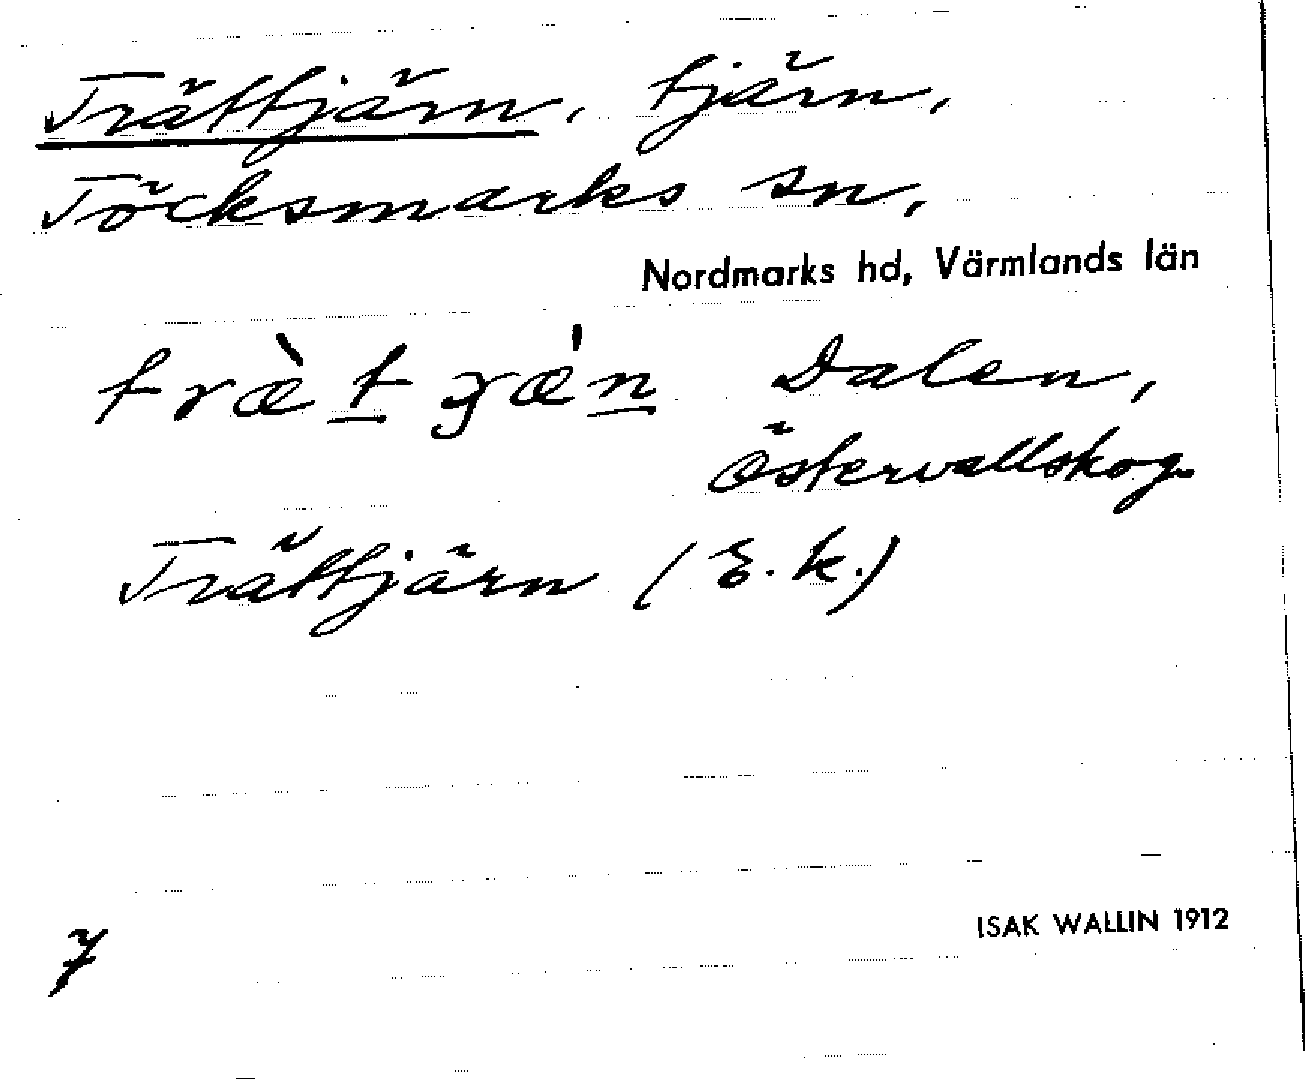 Trättjärn, tjärn,
Töcksmarks sn,
Nordmarks hd, Värmlands län
Dalen,
Östervallskog
Trättjärn (E. k.)
7
ISAK WALLIN 1912